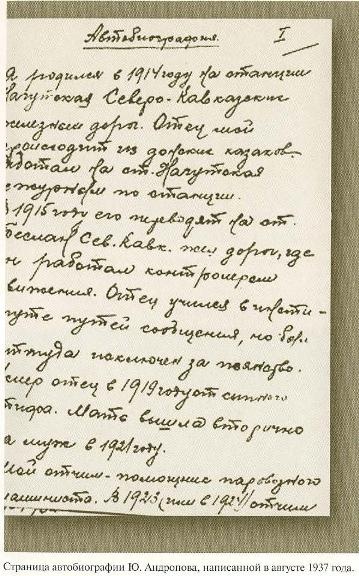 Автобиография.
I
Я родился в 1914 году на станции
Нагутская Северо-Кавказские
железные дороги. Отец мой
происходит из донских казаков.
Работал на ст. Нагутская
дежурным по станции.
1915 году его переводят на ст.
Беслан Сев. Кавк. жел дороги, где
он работал контролером
движения. Отец учился в инсти-
туте путей сообщения, но был
оттуда исключен за пьянство.
Умер отец в 1919 году от сыпного
тифа. Мать вышла вторично
за муж в 1921 году.
Мой отчим - помощник паровозного
машиниста. В 1923 (или в 1924) отчим
Страница автобиографии Ю. Андропова, написанной в августе 1937 года.